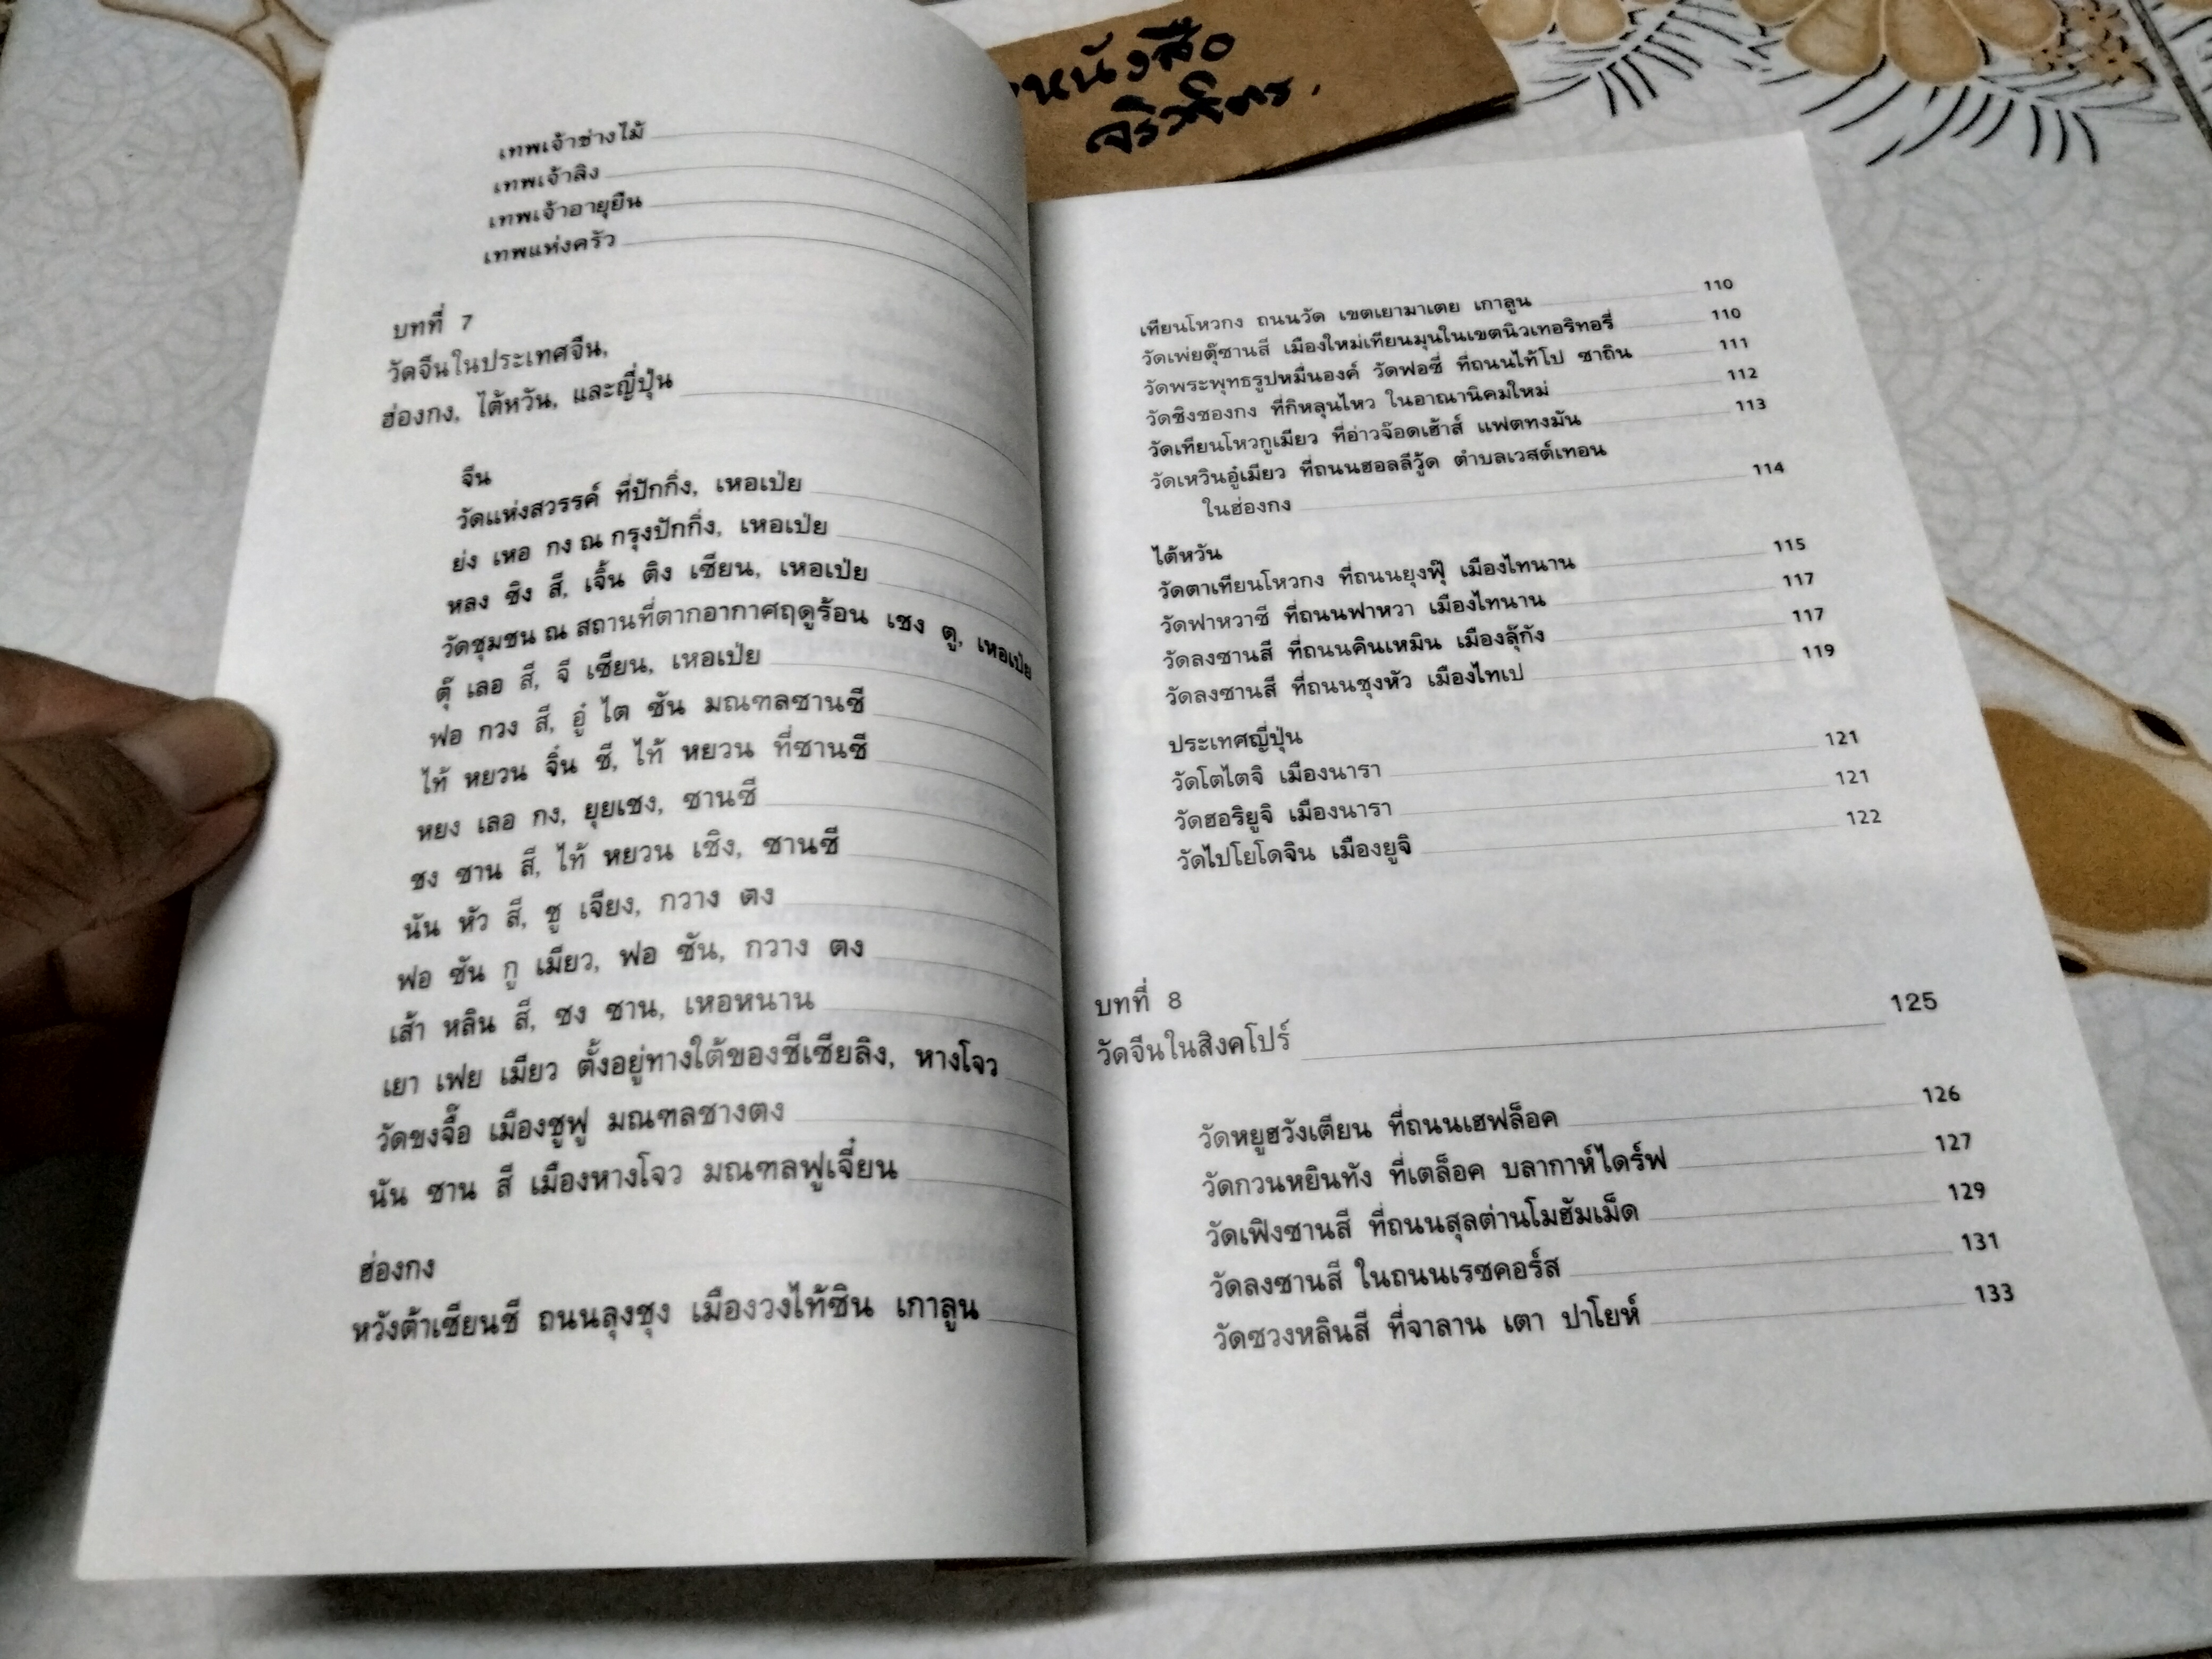 หนังสือ
เทพเจ้าช่างไม้
เทพเจ้าลิง
เทพเจ้าอายุยืน
เทพแห่งครัว
บทที่ 7
วัดจีนในประเทศจีน,
ฮ่องกง, ไต้หวัน, และญี่ปุ่น
จีน
วัดแห่งสวรรค์ ที่ปักกิ่ง, เหอเป่ย
ย่ง เหอ กง ณ กรุงปักกิ่ง, เหอเป่ย
หลง ซิง สี, เจิ้น ติง เซียน, เหอเป่ย
วัดชุมชน ณ สถานที่ตากอากาศฤดูร้อน เชง ตู, เหอเป่ย
ตุ๊ เลอ สี, จี เซียน, เหอเป่ย
ฟอ กวง สี, อู๋ ไต ซัน มณฑลซานซี
ไท้ หยวน จิ้น ซี, ไท้ หยวน ที่ซานซี
หยง เลอ กง, ยุยเชง, ซานซี
ชง ซาน สี, ไท้ หยวน เชิง, ซานซี
นัน หัว สี, ชู เจียง, กวาง ตง
ฟอ ซัน กู เมียว, ฟอ ซัน, กวาง ตง
เส้า หลิน สี, ซง ซาน, เหอหนาน
เยา เฟย เมียว ตั้งอยู่ทางใต้ของซีเซียลิง, หางโจว
วัดขงจื๊อ เมืองชูฟู มณฑลชางตง
นัน ซาน สี เมืองหางโจว มณฑลฟูเจี๋ยน
ฮ่องกง
หวังต้าเซียนซี ถนนลุงชุง เมืองวงไท้ซิน เกาลูน
เทียนโหวกง ถนนวัด เขตเยามาเตย เกาลูน 110
วัดเพ่ยตุ๊ซานสี เมืองใหม่เทียนมุนในเขตนิวเทอริทอรี่ 110
วัดพระพุทธรูปหมื่นองค์ วัดฟอซี่ ที่ถนนไท้โป ซาถิน 111
วัดชิงชองกง ที่กิหลุนไหว ในอาณานิคมใหม่ 112
วัดเทียนโหวกูเมียว ที่อ่าวจ๊อดเฮ้าส์ แฟตทงมัน 113
วัดเหวินอู๋เมียว ที่ถนนฮอลลีวู้ด ตำบลเวสต์เทอน
ในฮ่องกง 114
ไต้หวัน
วัดตาเทียนโหวกง ที่ถนนยุงฟุ๊ เมืองไทนาน 115
วัดฟาหวาซี ที่ถนนฟาหวา เมืองไทนาน 117
วัดลงซานสี ที่ถนนคินเหมิน เมืองลุ๊กัง 117
วัดลงซานสี ที่ถนนชุงหัว เมืองไทเป 119
ประเทศญี่ปุ่น
วัดโตไตจิ เมืองนารา 121
วัดฮอริยูจิ เมืองนารา 121
วัดไปโยโดจิน เมืองยูจิ 122
บทที่ 8
วัดจีนในสิงคโปร์ 125
วัดหยูฮวังเตียน ที่ถนนเฮฟล็อค 126
วัดกวนหยินทัง ที่เตล็อค บลากาห์ไดร์ฟ 127
วัดเฟิงซานสี ที่ถนนสุลต่านโมฮัมเม็ด 129
วัดลงซานสี ในถนนเรซคอร์ส 131
วัดซวงหลินสี ที่จาลาน เตา ปาโยห์ 133